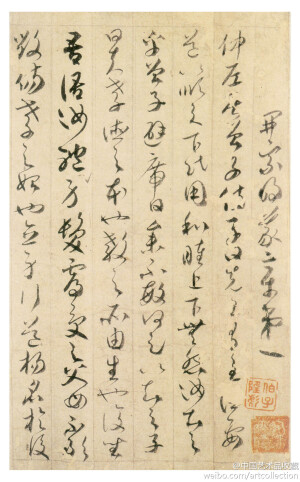 開宗明義章第一
仲尼居曾子侍子曰先王有至德要
道以順天下民用和睦上下無怨汝知之
乎曾子避席曰參不敏何足以知之子
曰夫孝德之本也教之所由生也復坐
吾語汝身體髮膚受之父母不敢
毀傷孝之始也立身行道揚名於後
@中国艺术品收藏
weibo.com/artcollection